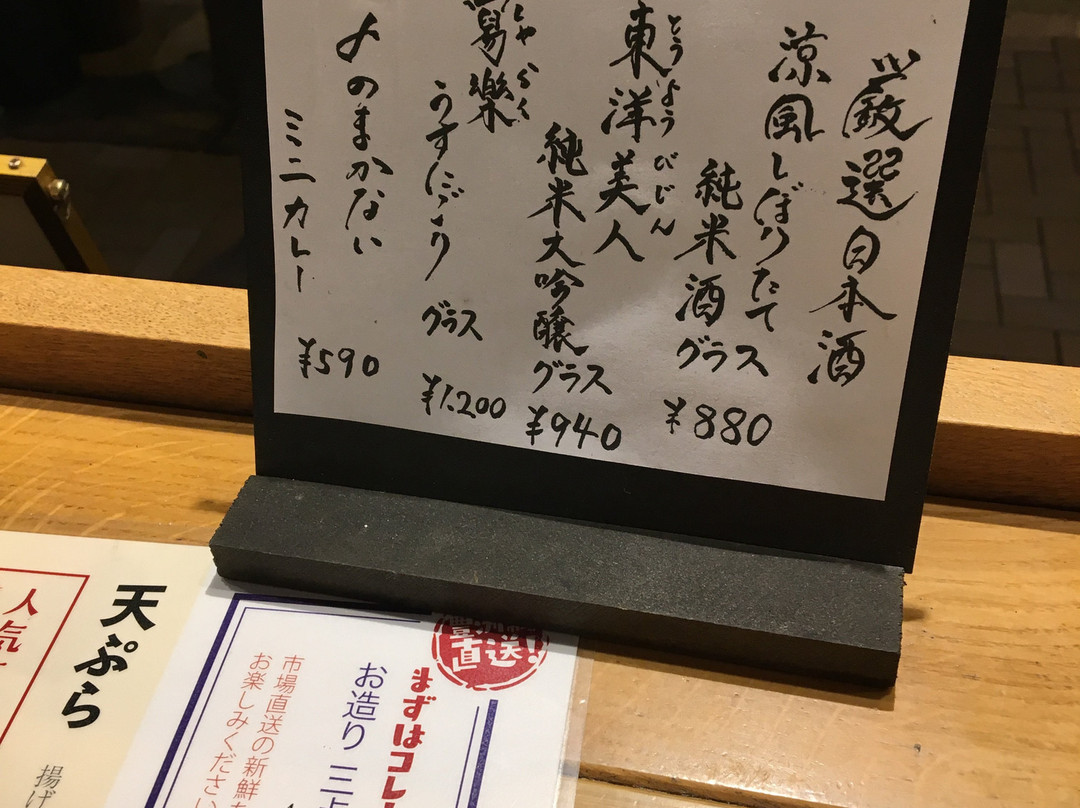 厳選日本酒
涼風しぼりたて
純米酒グラス
¥880
東洋美人
とうようびじん
純米大吟醸
グラス
¥940
寫樂
しゃらく
うすにごり
グラス
¥1.200
〆のまかない
ミニカレー
¥590
天ぷら
揚げ
人気
直送!
まずはコレ
お造り 三
市場直送の新鮮
お楽しみください